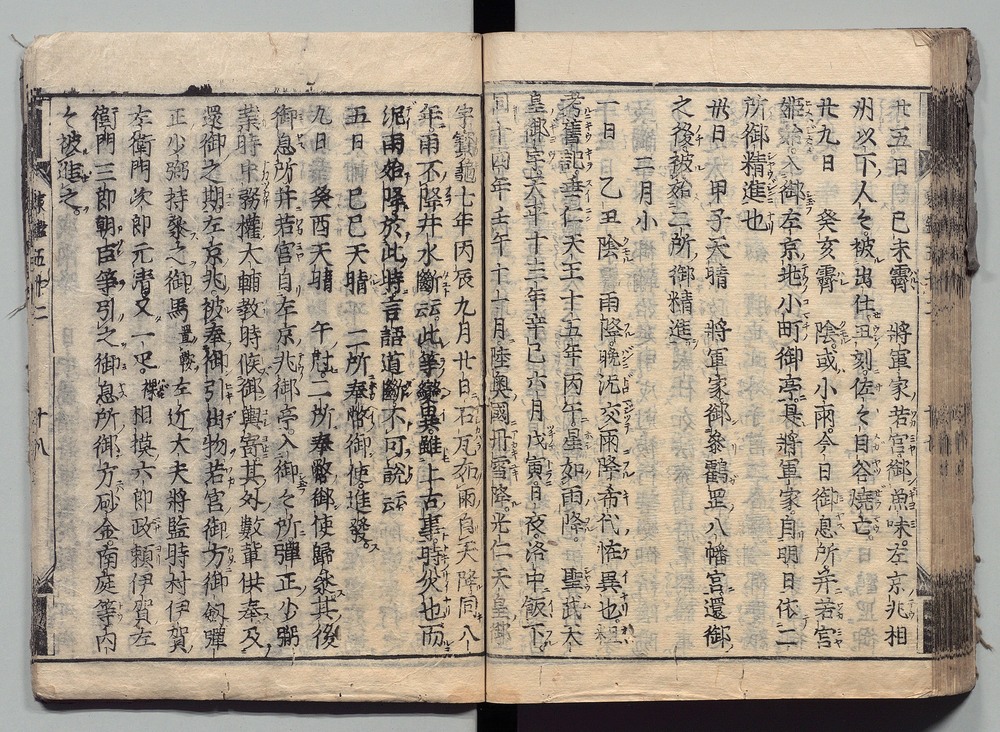 廿五日 己未霽 將軍家若宮御魚味左京兆相
州以下人々被出仕丑刻佐々目谷燒亡
廿九日 癸亥霽 陰或小雨今日御息所并若宮
姫宮入御左京兆小町御亭是將軍家自明日依二
所御精進也
卅日 甲子天晴 將軍家御參鶴岡八幡宮還御
之後被始二所御精進
三月小
一日 乙丑 陰 雨降晩泥交雨降希代恠異也粗
考舊記垂仁天王十五年丙午星如雨降聖武天
皇御宇天平十三年辛巳六月戊寅日夜洛中飯下
同十四年壬午十一月陸奥國丹雪降光仁天皇御
宇寶龜七年丙辰九月廿日石瓦如雨自天降同八
年雨不降井水斷云此等變異雖上古事時災也而
泥雨始降於此時言語道斷不可説云云
五日 己巳天晴 二所奉幣御使進發
九日 癸酉天晴 午尅二所奉幣御使歸參其後
御息所并若宮自左京兆御亭入御々所彈正少弼
業時中務權大輔教時候御輿寄其外數輩供奉及
還御之期左京兆被奉御引出物若宮御方御劔彈
正少弼持參之御馬置鞍 左近大夫將監時村伊賀
左衛門次郎元清又一疋裸 相摸六郎政頼伊賀左
衛門三郎朝臣等引之御息所御方砂金南庭等内
々被進之
東鑑五十二 十八